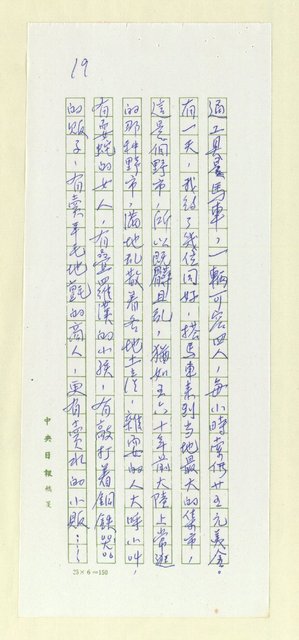 19
通工具是馬車，一輛可容四人，每小時索價廿五元美金。
有一天，我約了幾位同好，搭馬車來到當地最大的集市，
這是個野市，所以既髒且亂，猶如五六十年前大陸上常逛
的那种野市，滿地乱散着各地土產，雜耍的人大呼小叫，
有耍蛇的女人，有疊羅漢的小孩，有敲打着銅鉄器
的販子，有賣羊毛地氈的商人，更有賣水的小販……
中央日報稿箋
25×6=150